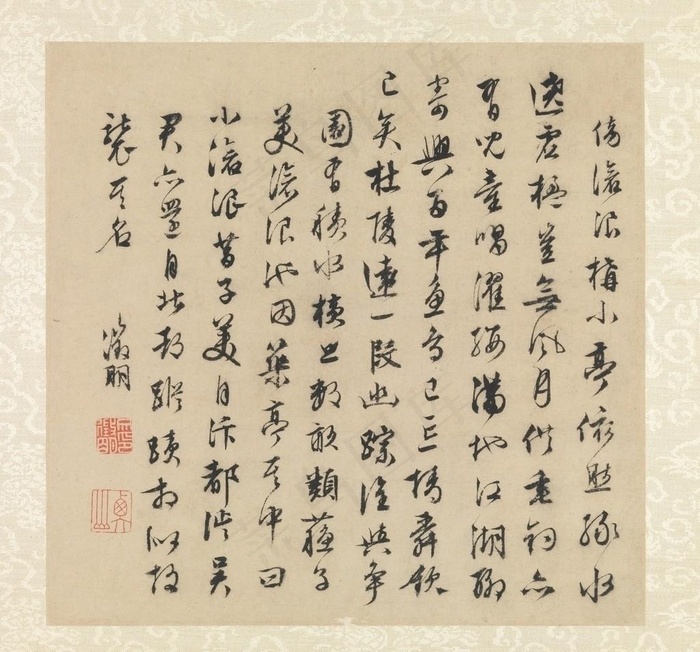 傍滄浪構小亭依然綠水
遶虛楹豈無風月供垂釣亦
有兒童唱濯纓滿地江湖聊
寄興百年魚鳥已忘情舜欽
已矣杜陵遠一段幽踪誰與爭
園有積水橫亘數畝類蘇子
美滄浪池因築亭其中曰
小滄浪昔子美自汴都徙吳
君亦還自北都蹤蹟相似故
襲其名
徵明